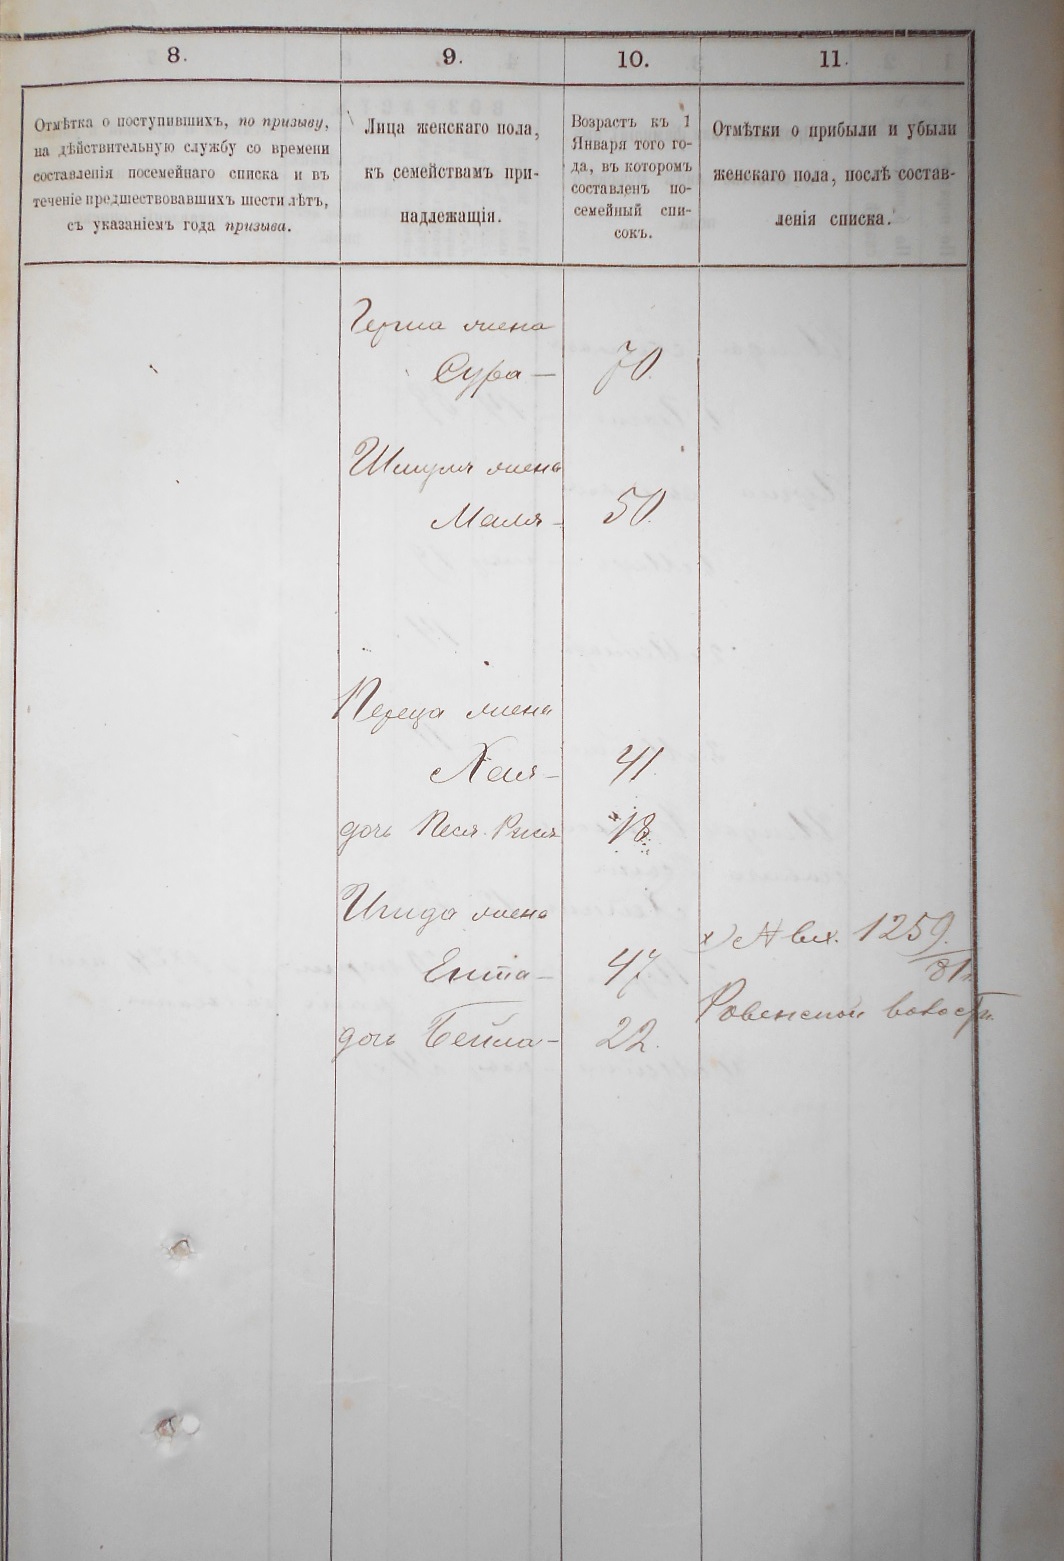 8.
9.
10.
11.
Отмѣтка о поступившихъ, по призыву,
на дѣйствительную службу со времени
составленія посемейнаго списка и въ
теченіе предшествовавшихъ шести лѣтъ,
съ указаніемъ года призыва.
Лица женскаго пола,
къ семействамъ при-
надлежащія.
Возрастъ къ 1
Января того го-
да, въ которомъ
составленъ по-
семейный спи-
сокъ.
Отмѣтки о прибыли и убыли
женскаго пола, послѣ состав-
ленія списка.
жена
Сура — 70.
Шмуля жена
Маля - 50.
Переца жена
Хая - 41
дочь Песя 13
жена
Ента - 47
дочь Бейла - 22.
х) № вх. 1259.
81